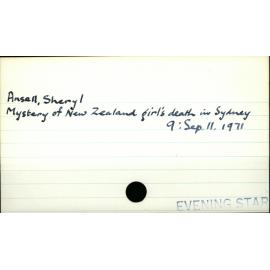 Ansell, Sheryl
Mystery of New Zealand girl's death in Sydney
9: Sep. 11. 1971
EVENING STAR